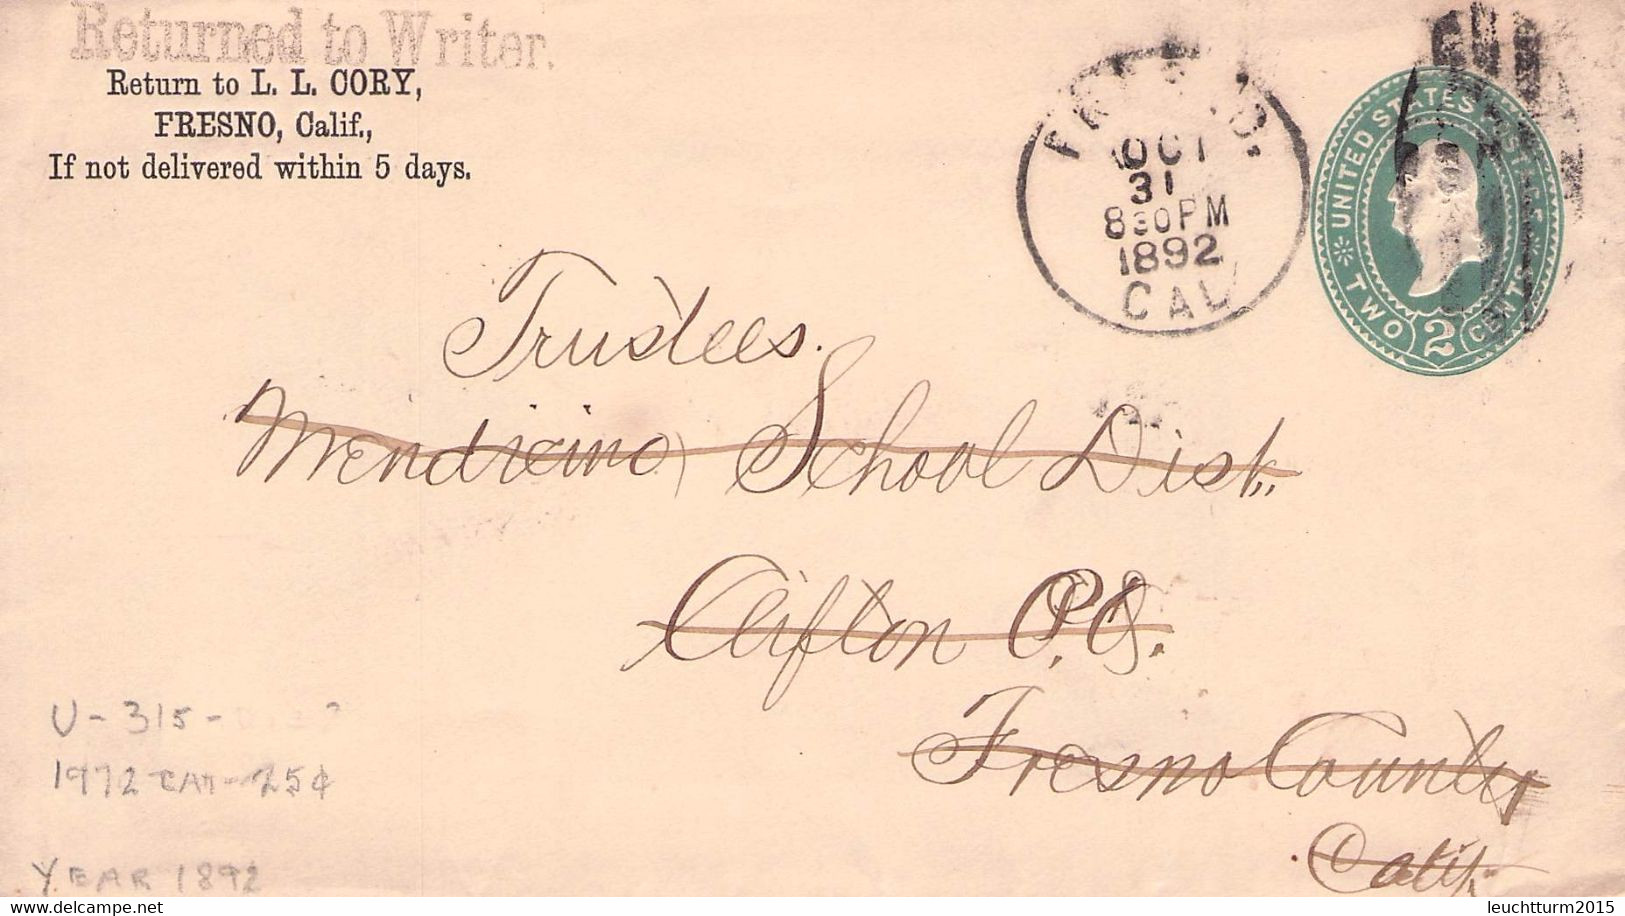 Returned to Writer.
Return to L. L. CORY,
FRESNO, Calif.,
If not delivered within 5 days.
FRESNO.
OCT
31
830PM
1892
CAL
UNITED STATES POSTAGE
TWO 2 CENTS
Trustees.
Mendicino School Dist.
Clifton P.O.
Fresno County
Calif.
U-315-
1972 CAT-25¢
YEAR 1892
leuchtturm2015